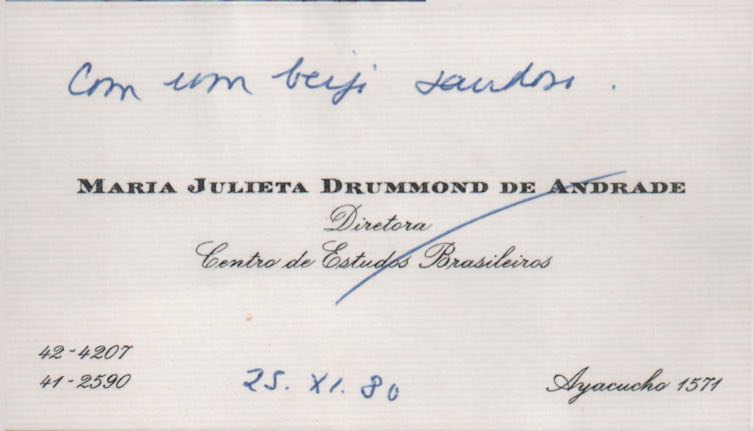 Com um beijo saudoso.
MARIA JULIETA DRUMMOND DE ANDRADE
Diretora
Centro de Estudos Brasileiros
42-4207
41-2590
25. XI. 80
Ayacucho 1571